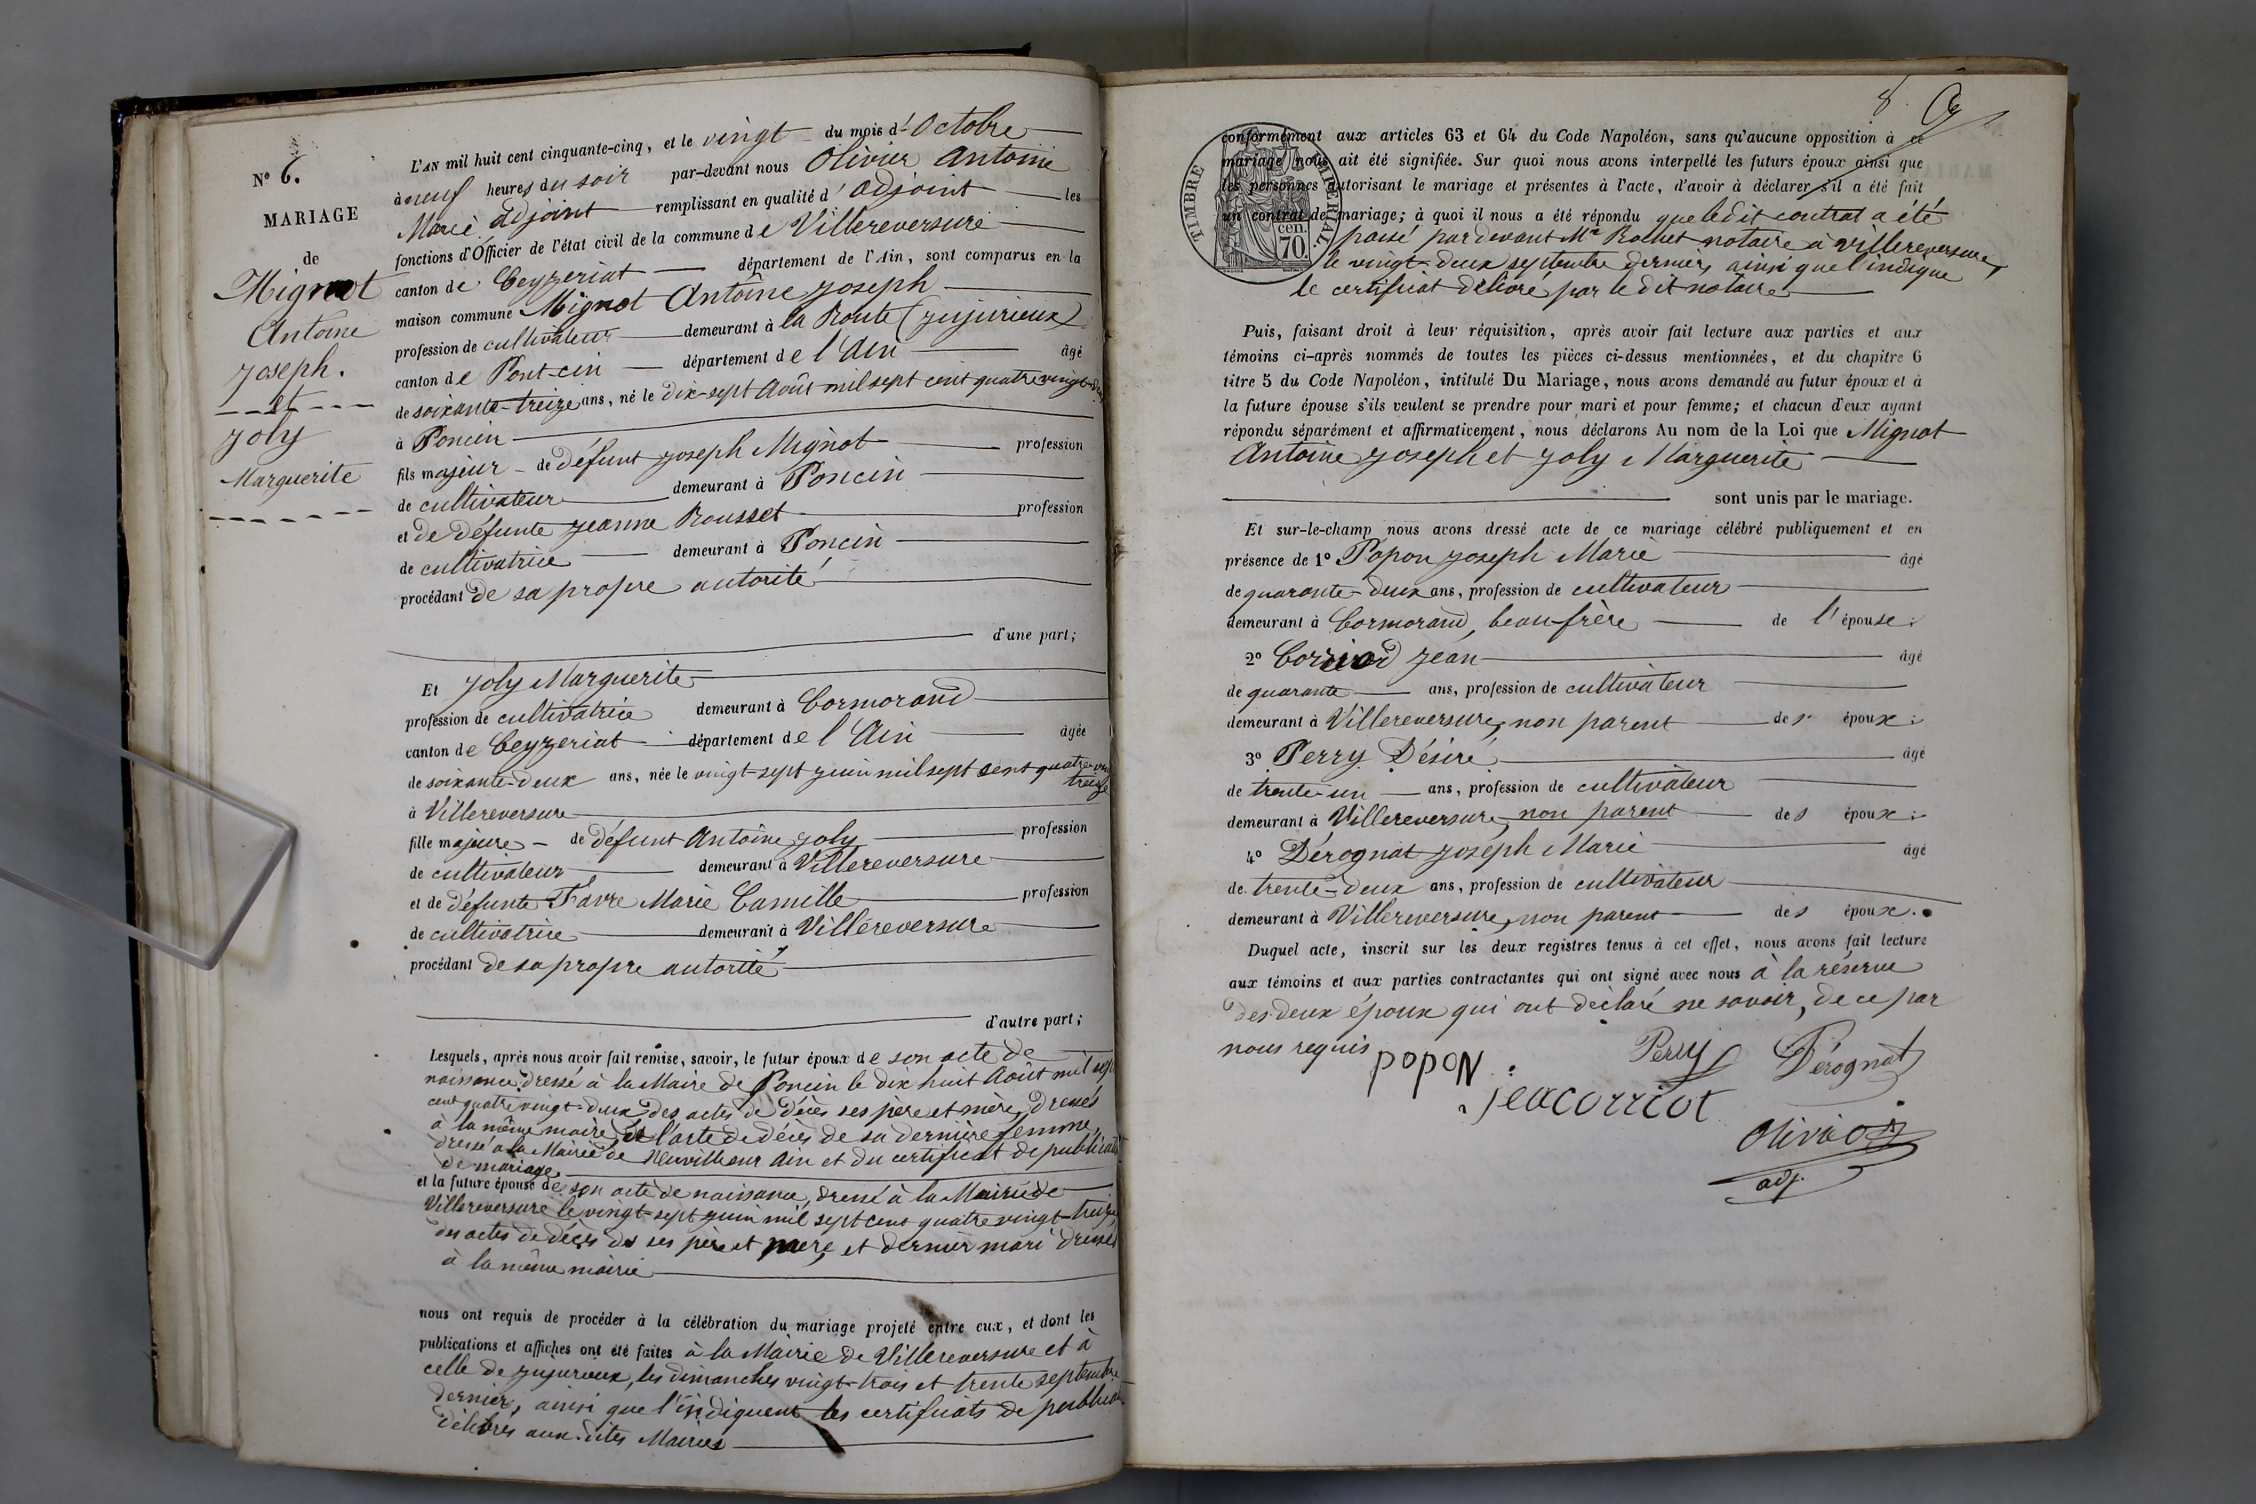 N° 6.
MARIAGE
de
Mignot
Antoine
Joseph.
et
Joly
Marguerite
L'AN mil huit cent cinquante-cinq, et le vingt du mois d'Octobre
à neuf heures du soir par-devant nous Olivier Antoine
Marie adjoint remplissant en qualité d'adjoint les
fonctions d'Officier de l'état civil de la commune de Villereversure
canton de Ceyzeriat département de l'Ain, sont comparus en la
maison commune Mignot Antoine Joseph
profession de cultivateur demeurant à la Route (Jujurieux)
canton de Pont-cin département de l'Ain âgé
de soixante-treize ans, né le dix-sept Août mil sept cent quatre vingt-deux
à Poncin
fils majeur de défunt Joseph Mignot profession
de cultivateur demeurant à Poncin
et de défunte Jeanne Rousset profession
de cultivatrice demeurant à Poncin
procédant de sa propre autorité
d'une part;
Et Joly Marguerite
profession de cultivatrice demeurant à Cormorand
canton de Ceyzeriat département de l'Ain âgée
de soixante-deux ans, née le vingt-sept juin mil sept cent quatre-vingt
treize
à Villereversure
fille majeure de défunt Antoine Joly profession
de cultivateur demeurant à Villereversure
et de défunte Favre Marie Camille profession
de cultivatrice demeurant à Villereversure
procédant de sa propre autorité
d'autre part;
Lesquels, après nous avoir fait remise, savoir, le futur époux de son acte de
naissance, dressé à la Maire de Poncin le dix huit Août mil sept
cent quatre vingt-deux des actes de décès ses père et mère, dressés
à la même mairie, de l'acte de décès de sa dernière femme,
dressé à la Mairie de Neuville sur Ain et du certificat de publication
de mariage
et la future épouse de son acte de naissance, dressé à la Mairie de
Villereversure le vingt-sept juin mil sept cent quatre vingt-treize
des actes de décès de ses père et mère, et dernier mari dressés
à la même mairie
nous ont requis de procéder à la célébration du mariage projeté entre eux, et dont les
publications et affiches ont été faites à la Mairie de Villereversure et à
celle de Jujurieux, les dimanches vingt-trois et trente septembre
dernier, ainsi que l'indiquent les certificats de publication
délivrés aux dites Mairies
8.
TIMBRE IMPERIAL.
70 cen.
conformément aux articles 63 et 64 du Code Napoléon, sans qu'aucune opposition à ce
mariage nous ait été signifiée. Sur quoi nous avons interpellé les futurs époux ainsi que
les personnes autorisant le mariage et présentes à l'acte, d'avoir à déclarer s'il a été fait
un contrat de mariage; à quoi il nous a été répondu que ledit contrat a été
passé par devant Me Rochet notaire à Villereversure,
le vingt-deux septembre dernier, ainsi que l'indique
le certificat délivré par le dit notaire
Puis, faisant droit à leur réquisition, après avoir fait lecture aux parties et aux
témoins ci-après nommés de toutes les pièces ci-dessus mentionnées, et du chapitre 6
titre 5 du Code Napoléon, intitulé Du Mariage, nous avons demandé au futur époux et à
la future épouse s'ils veulent se prendre pour mari et pour femme; et chacun d'eux ayant
répondu séparément et affirmativement, nous déclarons Au nom de la Loi que Mignot
Antoine Joseph et Joly Marguerite
sont unis par le mariage.
Et sur-le-champ nous avons dressé acte de ce mariage célébré publiquement et en
présence de 1° Popon Joseph Marie âgé
de quarante-deux ans, profession de cultivateur
demeurant à Cormorand, beau-frère de l'épouse;
2° Jean âgé
de quarante ans, profession de cultivateur
demeurant à Villereversure, non parent des époux;
3° Perry Désiré âgé
de trente-un ans, profession de cultivateur
demeurant à Villereversure, non parent des époux;
4° Dérognat Joseph Marie âgé
de trente-deux ans, profession de cultivateur
demeurant à Villereversure, non parent des époux.
Duquel acte, inscrit sur les deux registres tenus à cet effet, nous avons fait lecture
aux témoins et aux parties contractantes qui ont signé avec nous à la réserve
des deux époux qui ont déclaré ne savoir, de ce par
nous requis
popoN
Perry
Dérognat
jeacorriot
Olivier
adj.